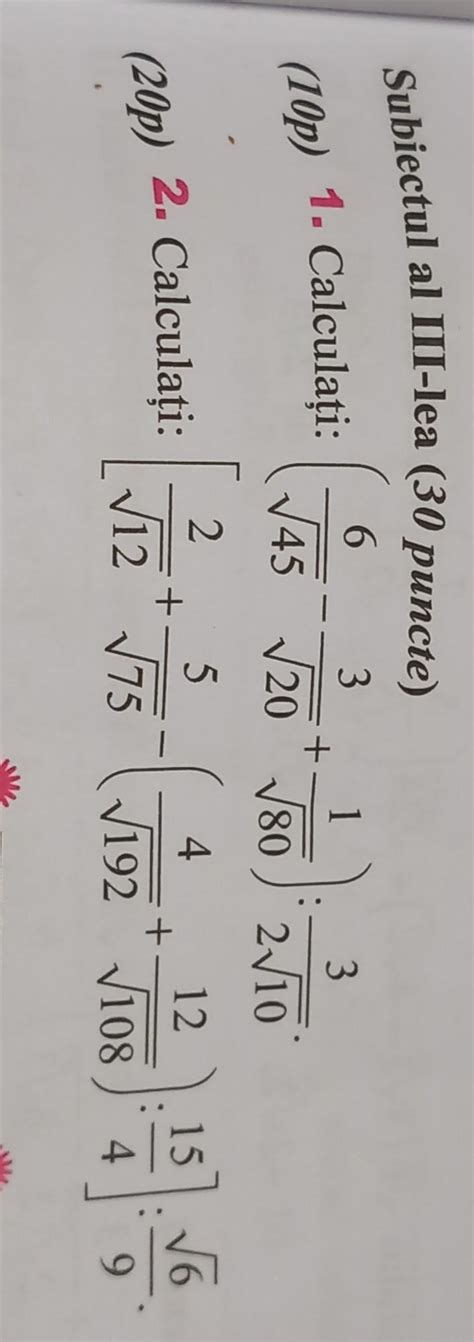 Subiectul al III-lea (30 puncte)
(10p) 1. Calculați: (6/√45 − 3/√20 + 1/√80) : 3/2√10.
(20p) 2. Calculați: [2/√12 + 5/√75 − (4/√192 + 12/√108) : 15/4] : √6/9.